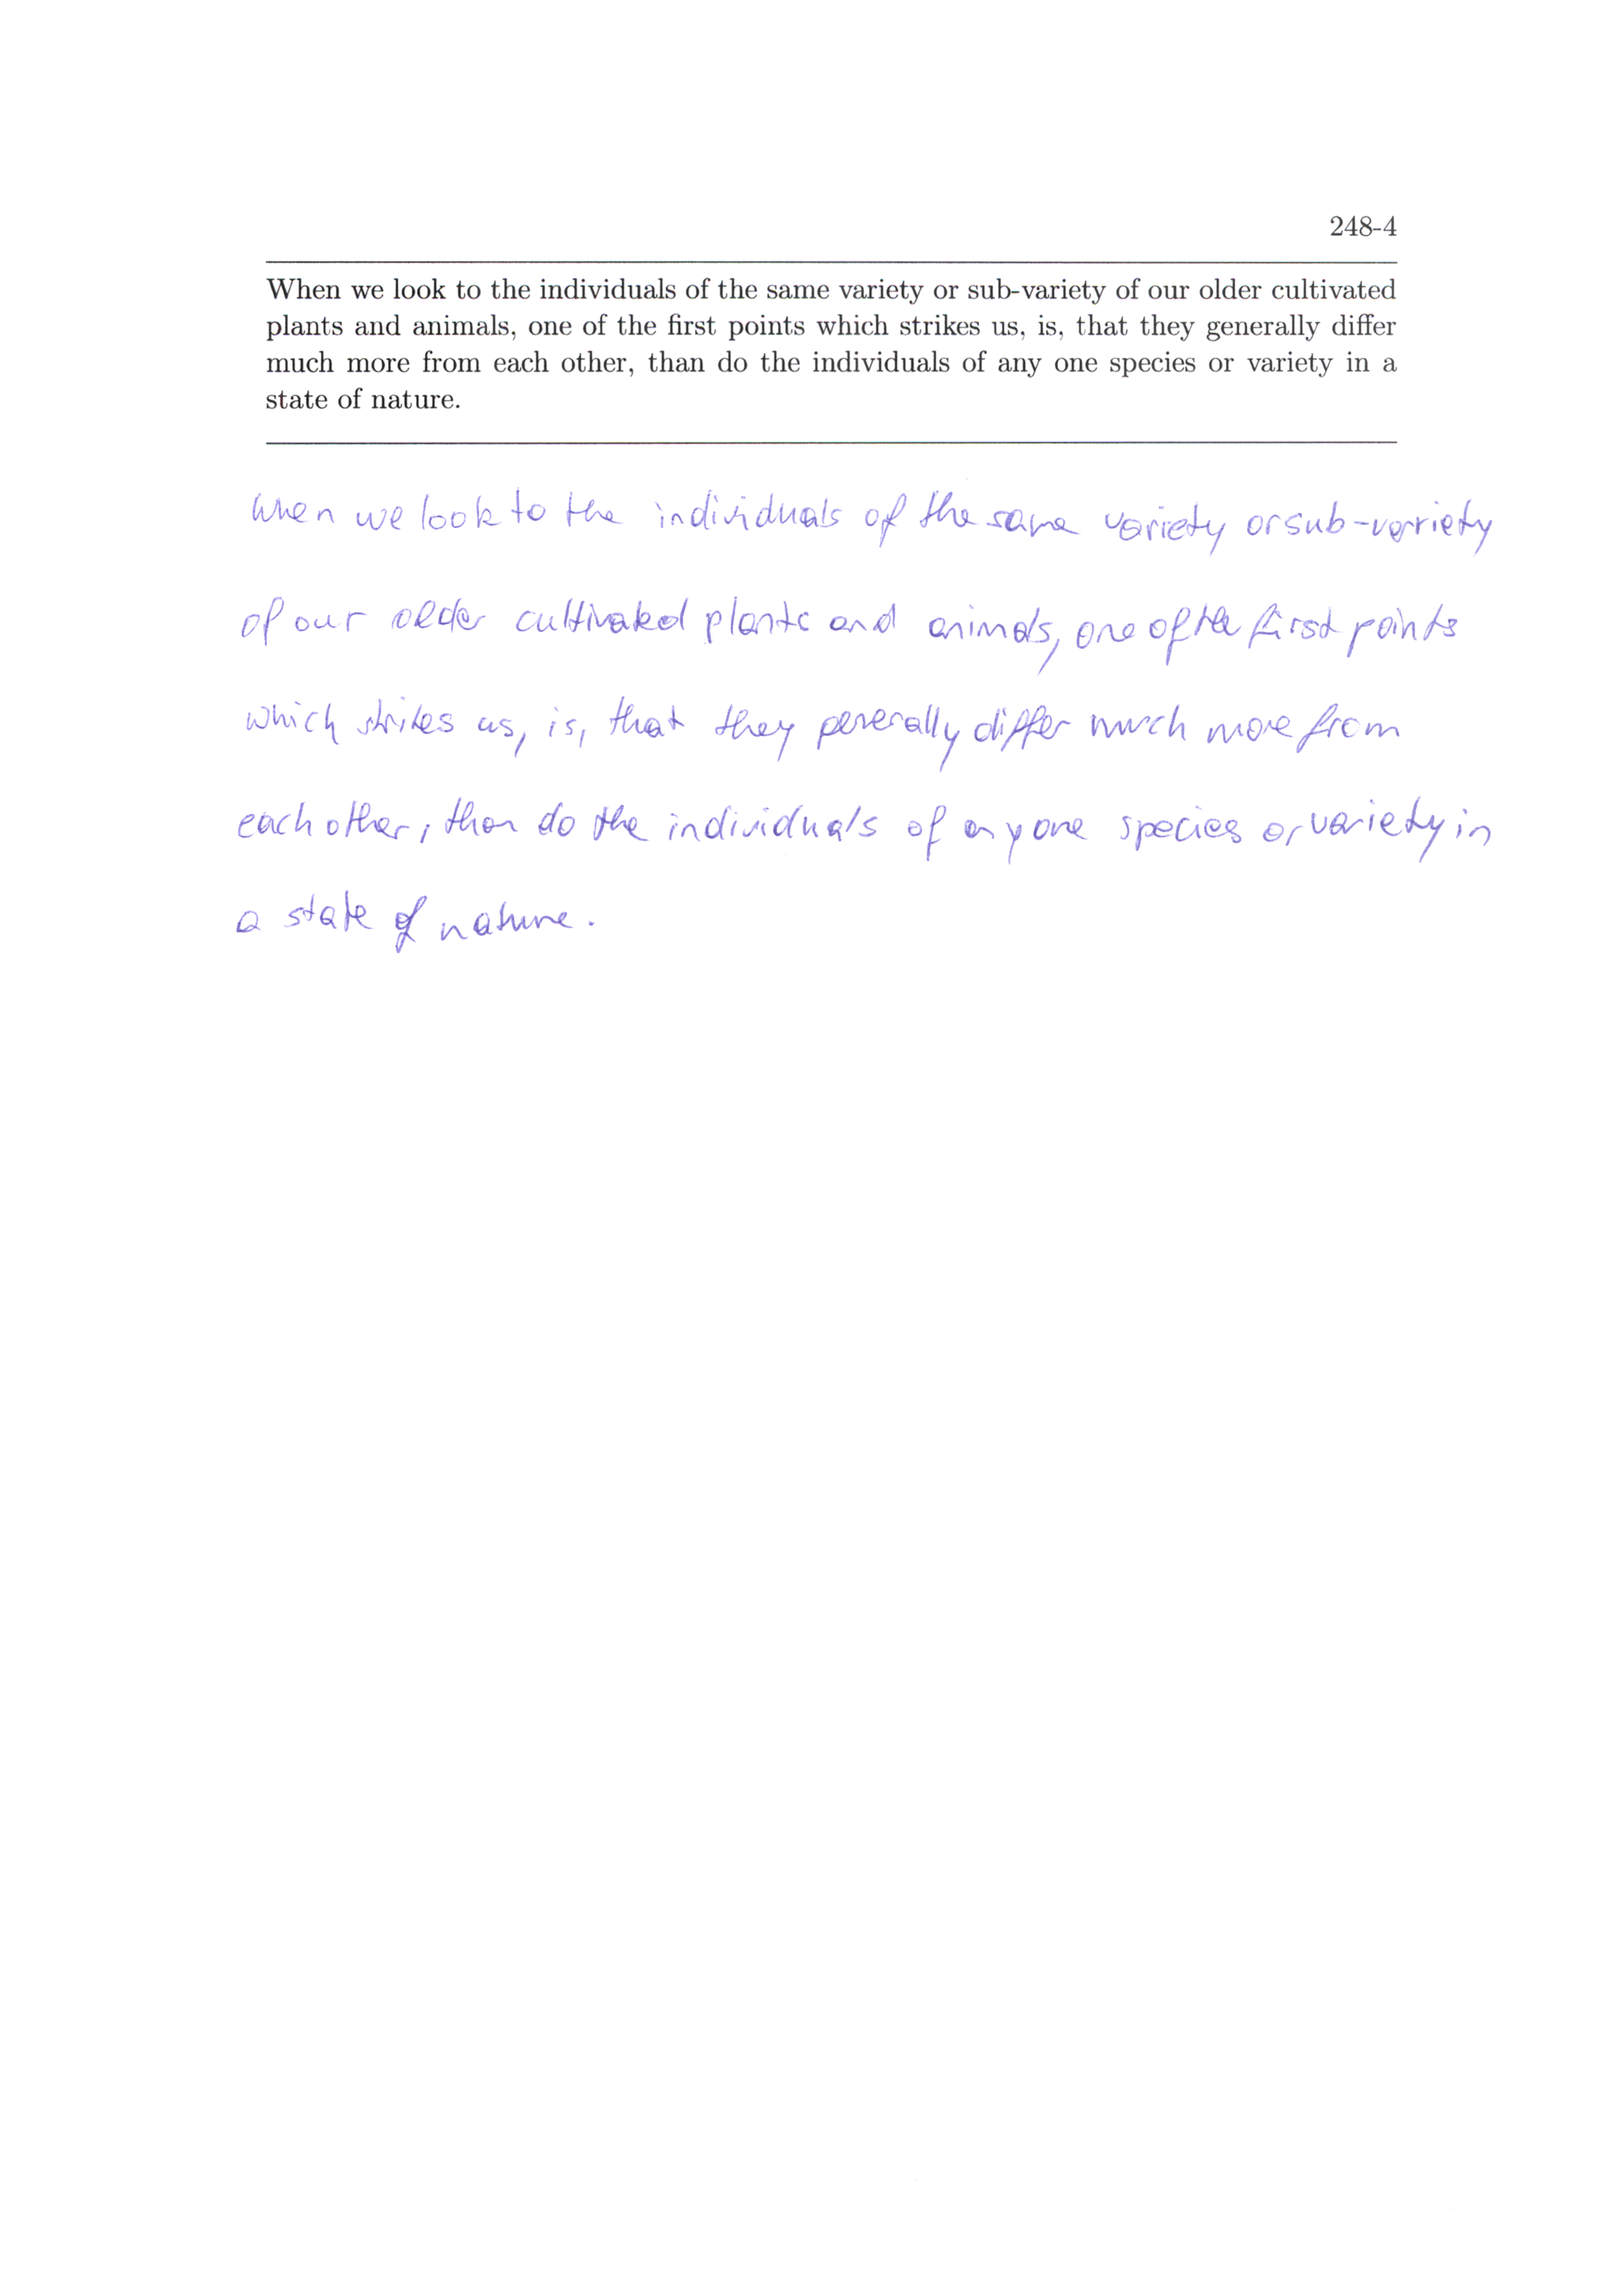 248-4
When we look to the individuals of the same variety or sub-variety of our older cultivated
plants and animals, one of the first points which strikes us, is, that they generally differ
much more from each other, than do the individuals of any one species or variety in a
state of nature.
When we look to the individuals of the same variety or sub-varriety
of our older cultivated plants and animals, one of the first points
which strikes us, is, that they generally differ much more from
each other, than do the individuals of any one species or variety in
a state of nature.